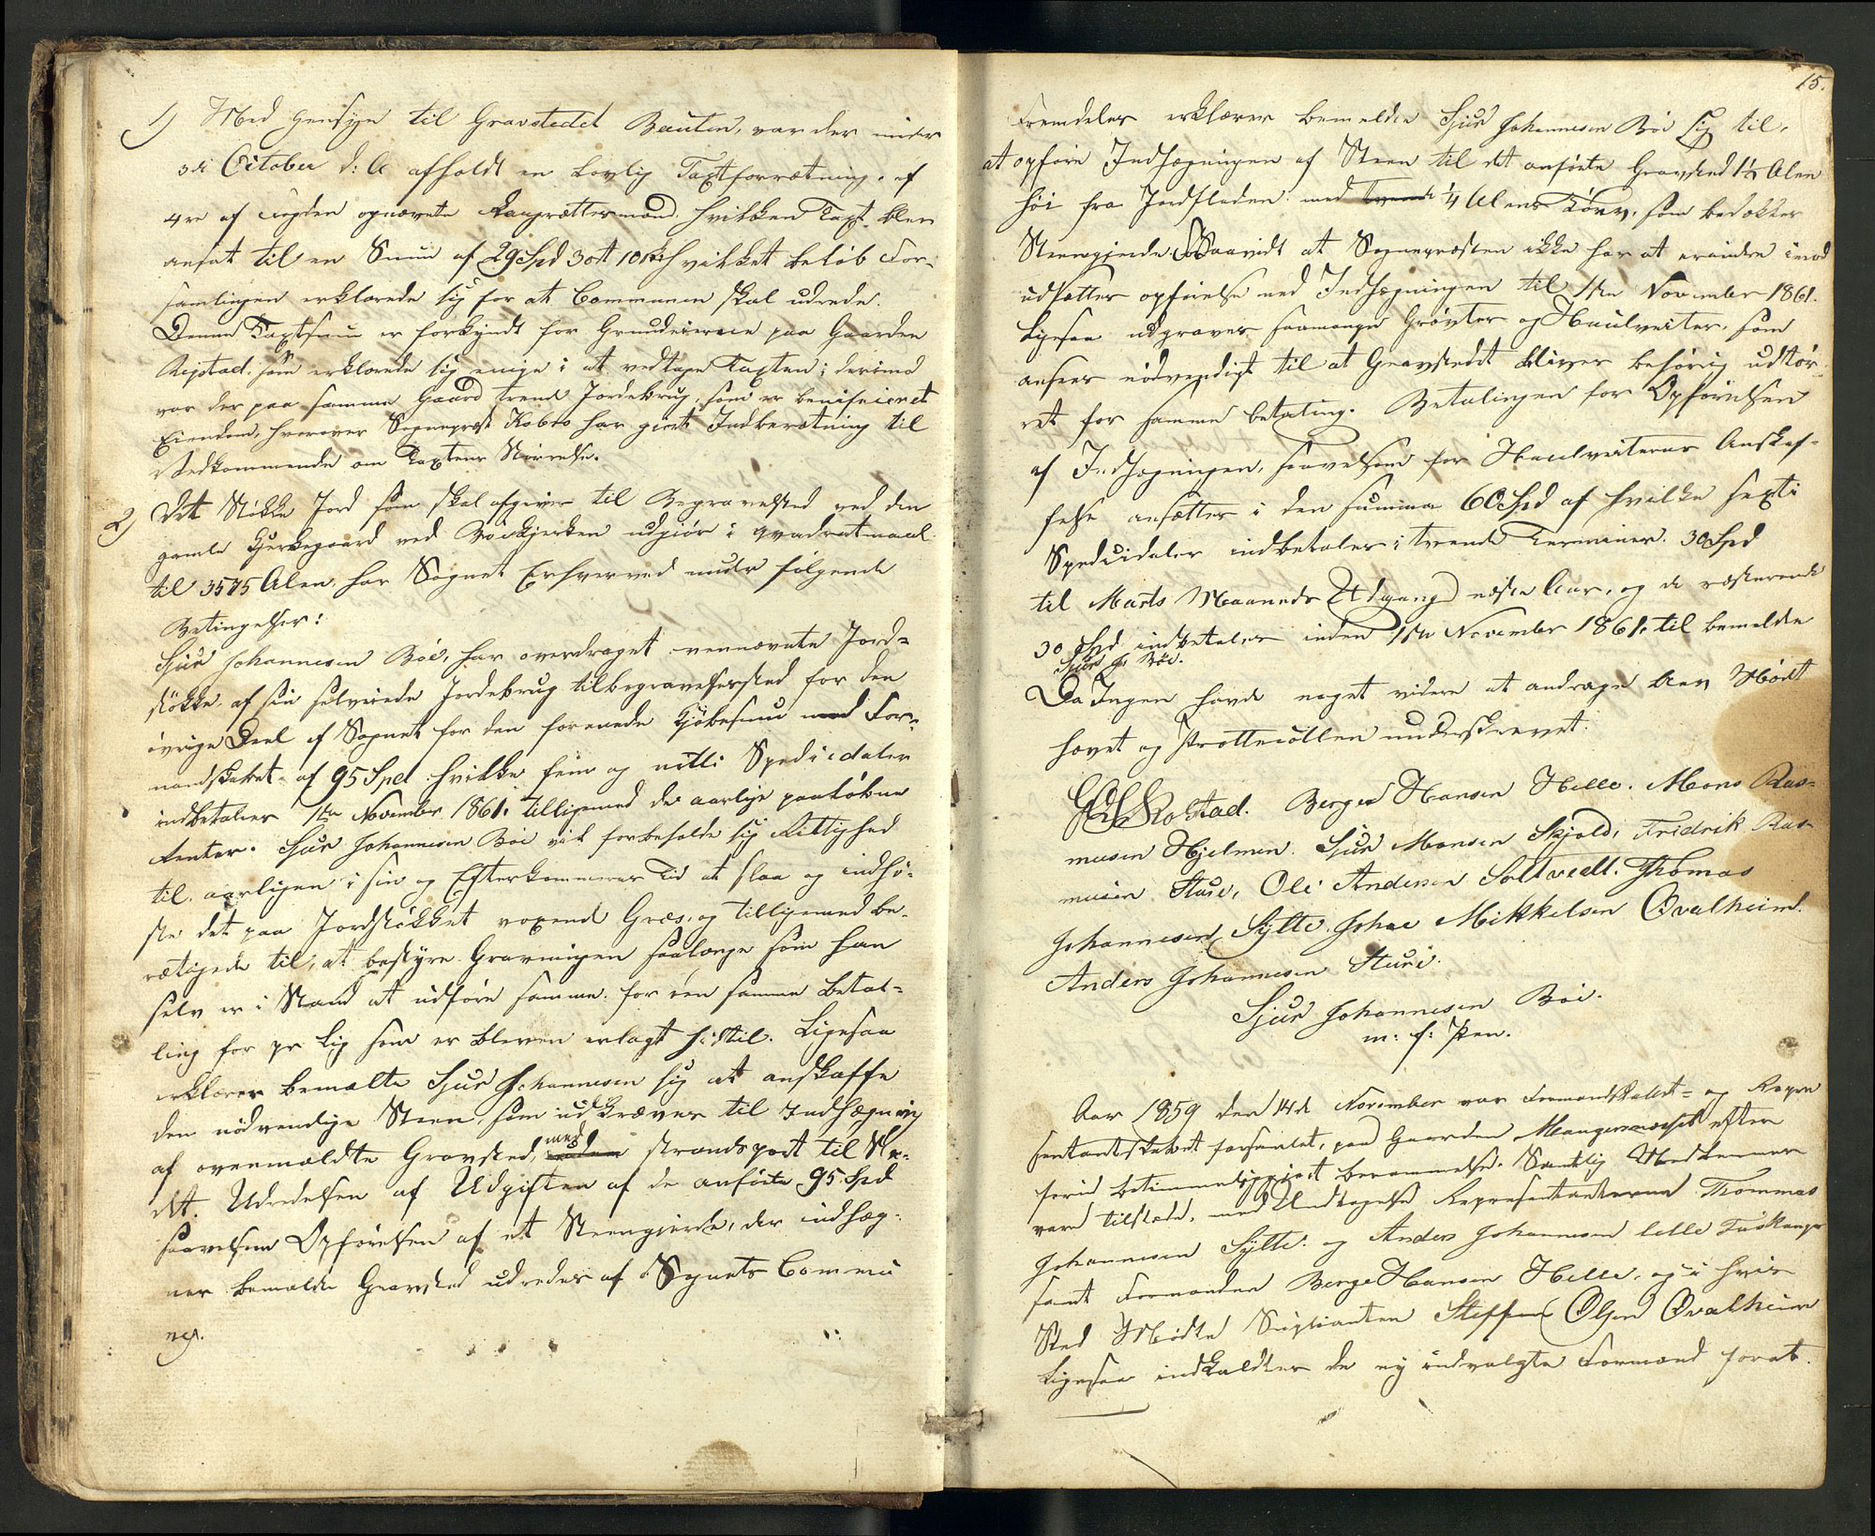 1) Med Hensyn til Gravstedet Bauten, var der under
3die October d: A afholdt en Lovlig Taxtforretning, af
4re af Lensmanden opnævnte Laugrettesmænd, hvilken Taxt blev
ansat til en Sum af 29 Spd 3 ort 10 s hvilket beløb For-
samlingen erklærede sig for at Communen skal udrede.
Denne Taxtsum er forkyndt for Grundeierne paa Gaarden
som erklærede sig enige i at vedtage Taxten; derimod
var der paa samme Gaard trende Jordebrug, som er benificeret
Eiendom, hvorover Sognepræst Kobro har gjort Indberetning til
Vedkommende om Taxtens Størrelse.
2) Det Støkke Jord som skal afgives til Begravelsted ved den
gamle Kjerkegaard ved Bøekjerken udgjør i qvadratmaal
til 3575 Alen, har Sognet Erhverved under følgende
Betingelser:
Sjur Johannesen Böe, har overdraget nævnte Jord-
støkke, af sin selveiende Jordebrug til begravelsessted for den
øvrige Deel af Sognet for den forenede Kjøbesum med For-
mandskabet af 95 Spd hvilke fem og nitti Speciedaler
indbetales 1ste November 1861, tilligemed de aarlige paaløbne
Renter. Sjur Johannesen Böe vil forbeholde sig Rettighed
til aarligen i sin og Efterkommeres Tid at slaa og indhø-
ste det paa Jordstøkket voxende Græs, og tilligemed be-
rettiget til, at bestyre Gravningen saalænge som han
selv er i Stand at udføre samme, for den samme Betal-
ling for pr Lig som er bleven erlagt hidtil. Ligesaa
erklærer bemældte Sjur Johannesen sig at anskaffe
den nødvendige Steen, som udkræves til Indhægning
af ovenmældte Gravsted, med strandsport til Ste-
det. Udredelsen af Udgiften af de anførte 95 Spd
saavelsom Opførelsen af et Steengjerde, der indhæg-
ner bemældte Gravsted udredes af Sognets Commu
ne.
15.
Fremdeles erklærer bemeldte Sjur Johannesen Böe sig til,
at opføre Indhægningen af Steen til det anførte Gravsted 1½ Alen
høi fra Jordfladen med ¼ Alens Törv, som bedækker
Steengjerde. Saavidt at Sognepræsten ikke har at erindre imod
udsættes opførelse med Indhægningen til 1ste November 1861.
Ligesaa udgraves saamange Grøvter og Haulveiter, som
ansees nødvendigt til at Gravstedet bliver behørig udtør-
ret for samme betaling. Betalingen for Opførelsen
af Indhægningen, saavelsom for Haulveiternes Anskaf-
felse ansættes i den summa 60 Spd af hvilke sexti
Speciedaler indbetales i tvende Terminer. 30 Spd
til Marts Maaneds Udgang næste Aar, og de resterende
30 Spd indbetales inden 1ste November 1861, til bemeldte
Sjur J. Böe.
Da Ingen havde noget videre at andrage blev Mödet
hævet og Prottecollen underskrevet.
Kostad. Berge Hansen Helle. Mons Ras-
musen Hjelmen. Sjur Monsen Skjold, Fridrik Ras-
musen Sture, Ole Andersen Soltvedt. Thomas
Johannesen Sylte. Johae Mikkelsen Qvalheim.
Anders Johannesen Sture.
Sjur Johannesen Böe.
m: f: Pen.
Aar 1859 den 14de November var Formandskabet- og Repre
sentantskabet forsamlet, paa Gaarden Mangersnæset efter
forud betimmeliggjort berammelse. Samtlig Medlemmer
vare tilstæde, med Undtagelse Representanterne Thommas
Johannesen Sylte. og Anders Johannesen lille Toskanger
samt Formanden Berge Hansen Helle, og i hvis
Sted Mødte Suplianten Steffen Olsen Qvalheim
Ligesaa indkaldtes de ny indvalgte Formænd forat.